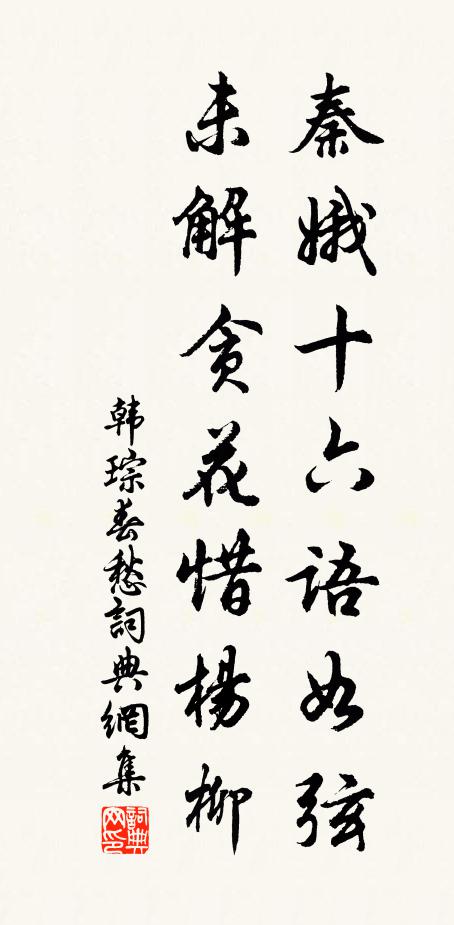 秦娥十六语如弦
未解贪花惜杨柳
韩琮春愁词典网集
词典网印